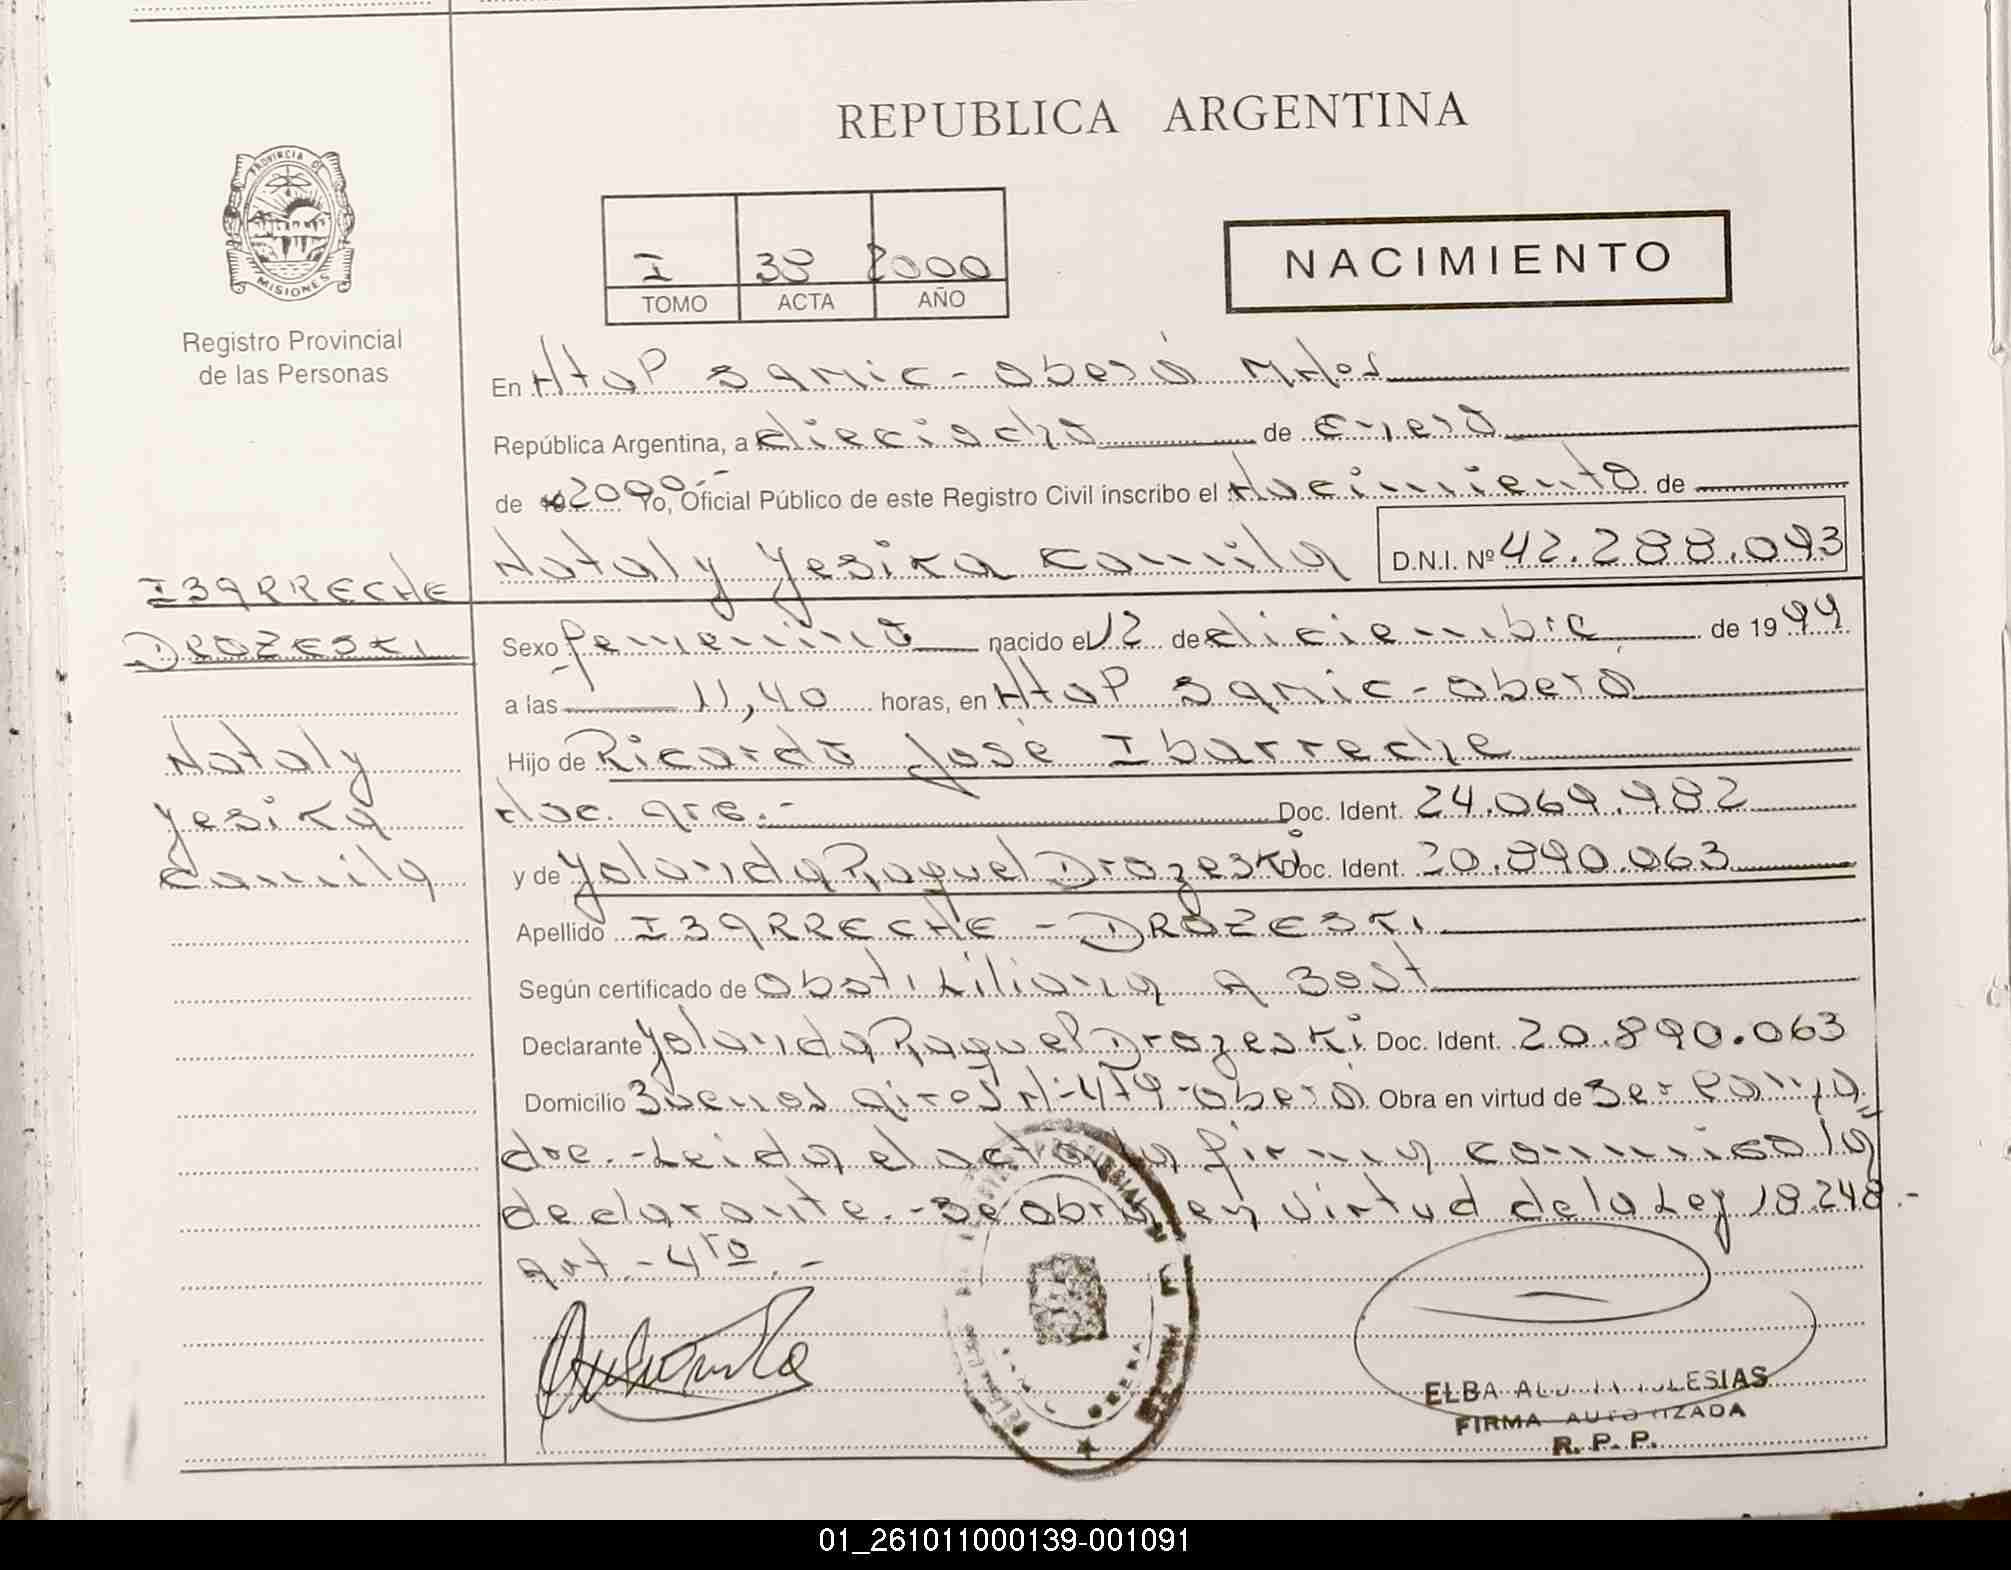 REPUBLICA ARGENTINA
PROVINCIA DE
MISIONES
Registro Provincial
de las Personas
I 38 2000
TOMO ACTA AÑO
NACIMIENTO
En Htal Samic - Oberá Mnes
República Argentina, a dieciocho de enero
de 2000.- Yo, Oficial Público de este Registro Civil inscribo el Nacimiento de
Nataly Yesika Camila D.N.I. Nº 42.288.093
IBARRECHE
DROZESKI
Nataly
Yesika
Camila
Sexo femenino nacido el 12 de diciembre de 1999
a las 11,40 horas, en Htal Samic - Oberá
Hijo de Ricardo José Ibarreche
Nac. Arg.- Doc. Ident. 24.069.982
y de Yolanda Raquel Drozeski Doc. Ident. 20.890.063
Apellido IBARRECHE - DROZESKI
Según certificado de Obst. Liliana A Bost
Declarante Yolanda Raquel Drozeski Doc. Ident. 20.890.063
Domicilio Buenos Aires N: 479 - Oberá Obra en virtud de Ser la Ma
dre.- Leida el acta la firma conmigo la
declarante.- Se obra en virtud de la Ley 18.248.-
art.- 4to.-
OBERA
ELBA IGLESIAS
FIRMA AUTORIZADA
R. P. P.
01_261011000139-001091